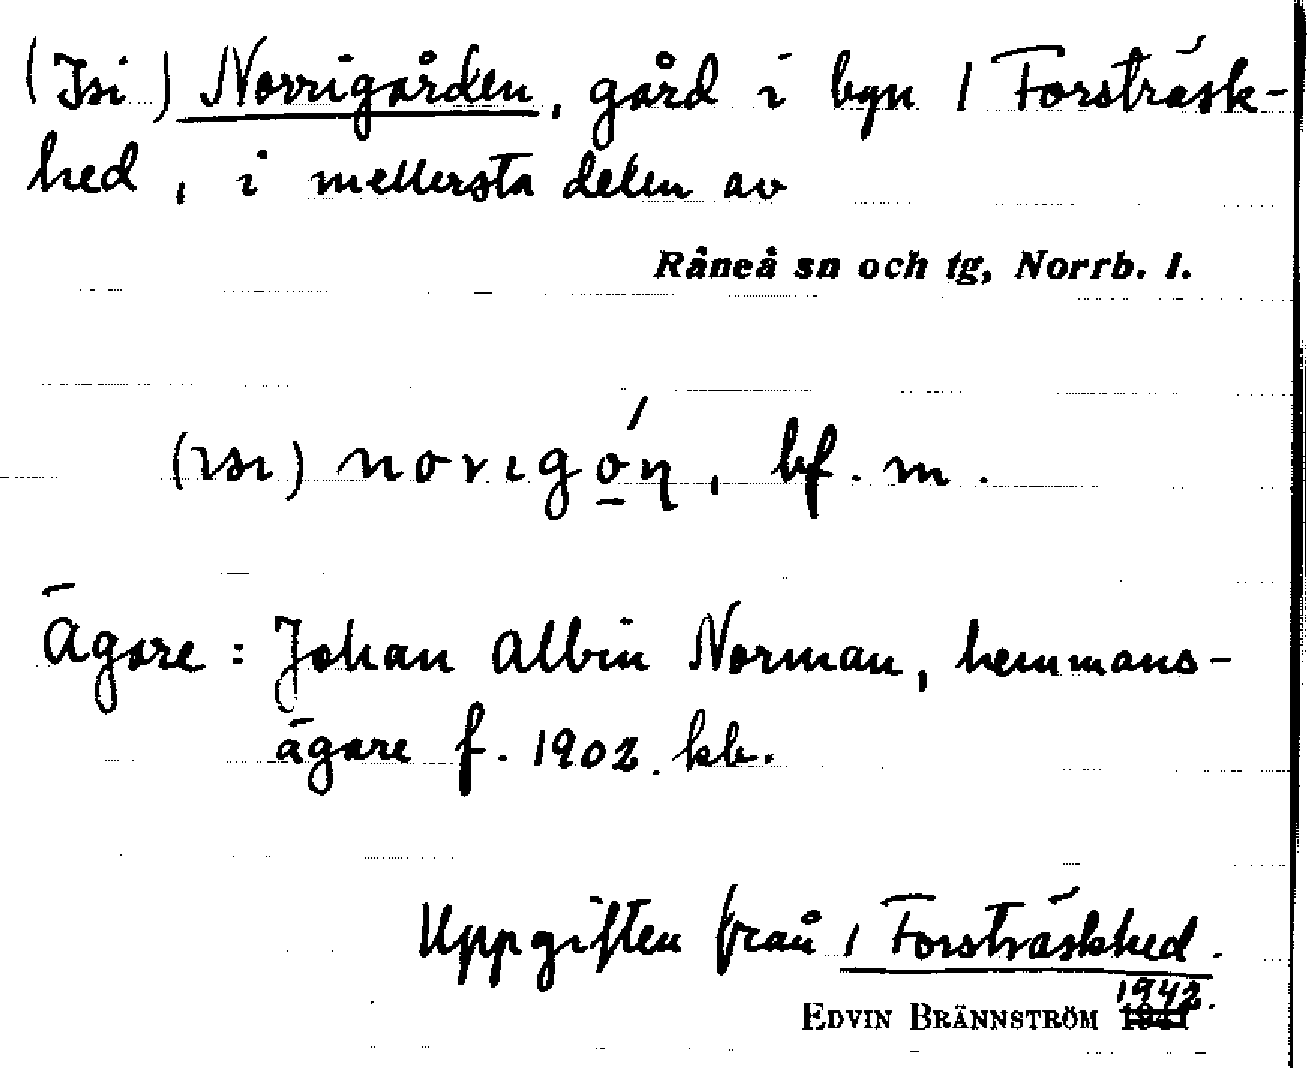 (Isi) Norrigården, gård i byn 1 Forsträsk-
hed, i mellersta delen av
Råneå sn och tg, Norrb. l.
(ısı) norıgóṇ, bf. m.
Ägare: Johan Albin Norman, hemmans-
ägare f. 1902. kb.
Uppgiften från 1 Forsträskhed.
1942.
EDVIN BRÄNNSTRÖM 1941